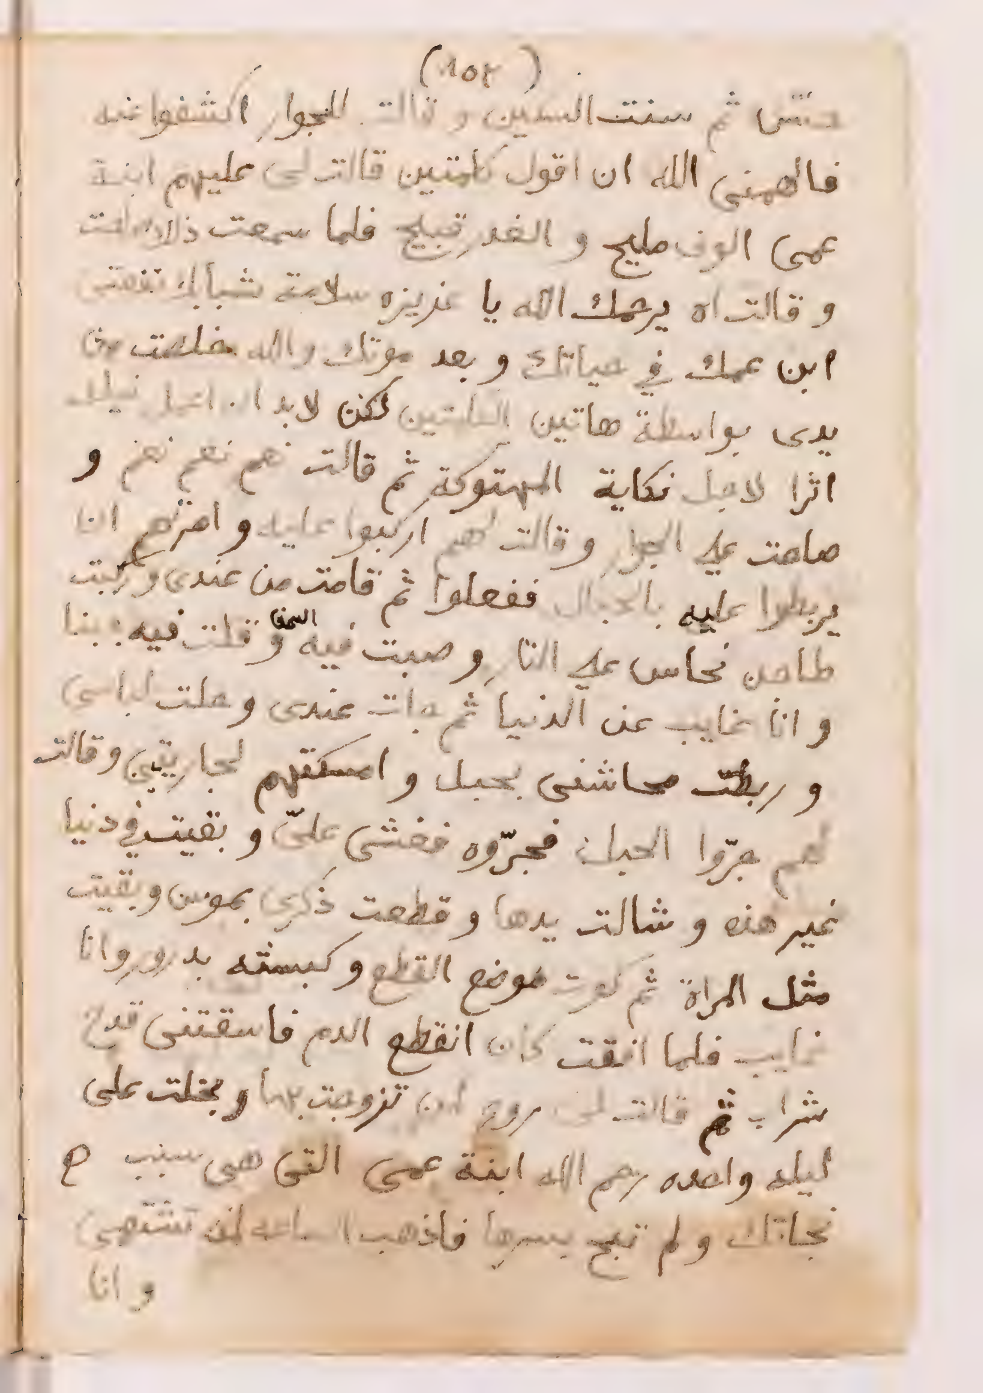 (١٥٢)
ثم سنت السكين و قالت للجوار اكشفوا عنه
فالهمنى الله ان اقول كلمتين قالت لى عليهم ابنة
عمى الوفا مليح و الغدر قبيح فلما سمعت ذلك
و قالت اه يرحمك الله يا عزيزه سلامة شبابك نفعتى
ابن عمك في حياتك و بعد موتك والله خلصت من
يدى بواسطة هاتين الكلمتين لكن لابد ان اعمل فيك
اثرا لاجل نكاية المهتوكة ثم قالت نعم نعم نعم و
صاحت على الجوار و قالت لهم اركبوا عليه و امرتهم ان
يربطوا عليه بالحبال ففعلوا ثم قامت من عندى و ركبت
طاجن نحاس على النار و صبت فيه السمن و قلت فيه جبنا
و انا غايب عن الدنيا ثم جات عندى و حلت لباسى
و ربطت محاشمى بحبل و امسكتهم لجاريتين و قالت
لهم جرّوا الحبل فجرّوه فغشى علىّ و بقيت في دنيا
غير هذه و شالت يدها و قطعت ذكرى بموس و بقيت
مثل المراة ثم كوت موضع القطع و كبسته بدرور وانا
غايب فلما افقت كان انقطع الدم فاسقتنى قدح
شراب ثم قالت لى روح لمن تزوجت بها و بخلت على
ليله واحده رحم الله ابنة عمى التى هى سبب
نجاتك و لم تبح بسرها فاذهب الساعه لمن تشتهى
و انا